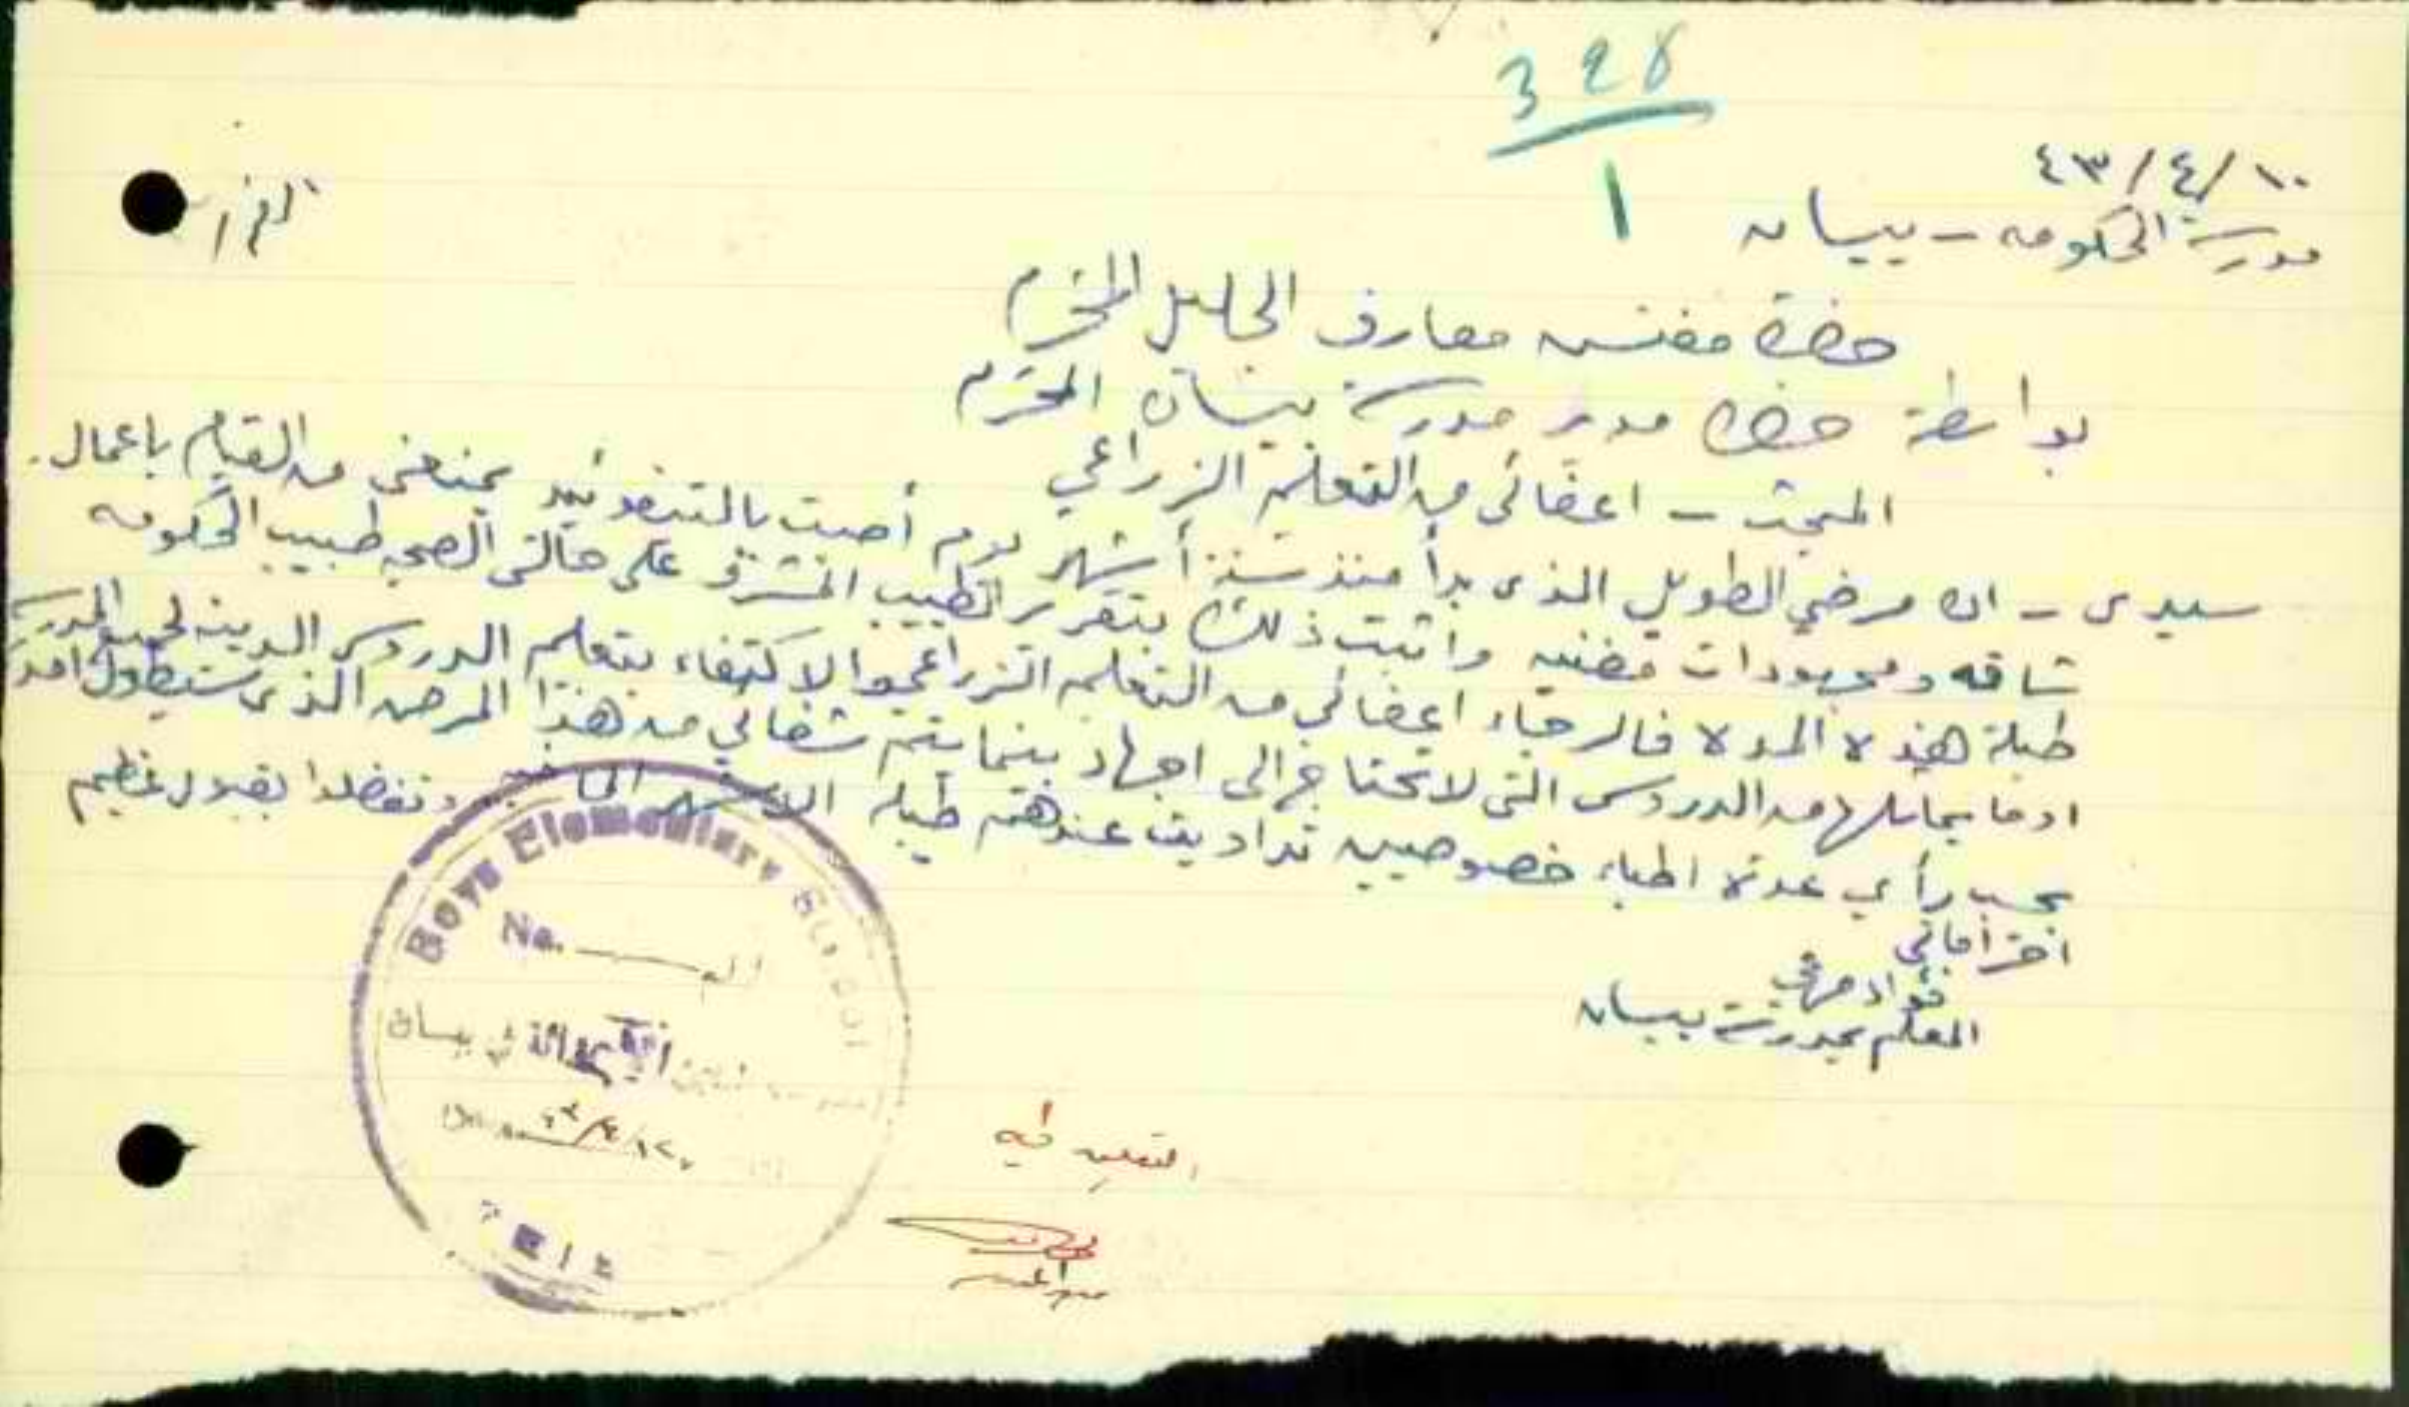 328
1
١٠/٤/٤٣
مدرسة الحكومه - بيسان
حضرة مفتش معارف الجليل المحترم
بواسطة حضرة مدير مدرسة بيسان المحترم
المبحث - اعفائي من التعليم الزراعي
سيدى - ان مرضي الطويل الذى بدأ منذ ستة أشهر يوم أصبت بالتيفوئيد يمنعني من القيام باعمال
شاقه ومجهودات مضنيه واثبت ذلك بتقرير الطبيب المشرف على حالتي الصحيه طبيب الحكومه
طيلة هذه المدة فالرجاء اعفائي من التعليم الزراعي والاكتفاء بتعليم الدروس الدينيه
او ما يماثلها من الدروس التى لا تحتاج الى اجهاد بينما يتم شفائي من هذا المرض الذى سيطول
بحسب رأي عدة اطباء خصوصيين تداويت عندهم طيلة الاشهر وتفضلوا بقبول عظيم
احتراماتي
فؤاد
المعلم بمدرسة بيسان
Boys Elementary School
No.
بيسان